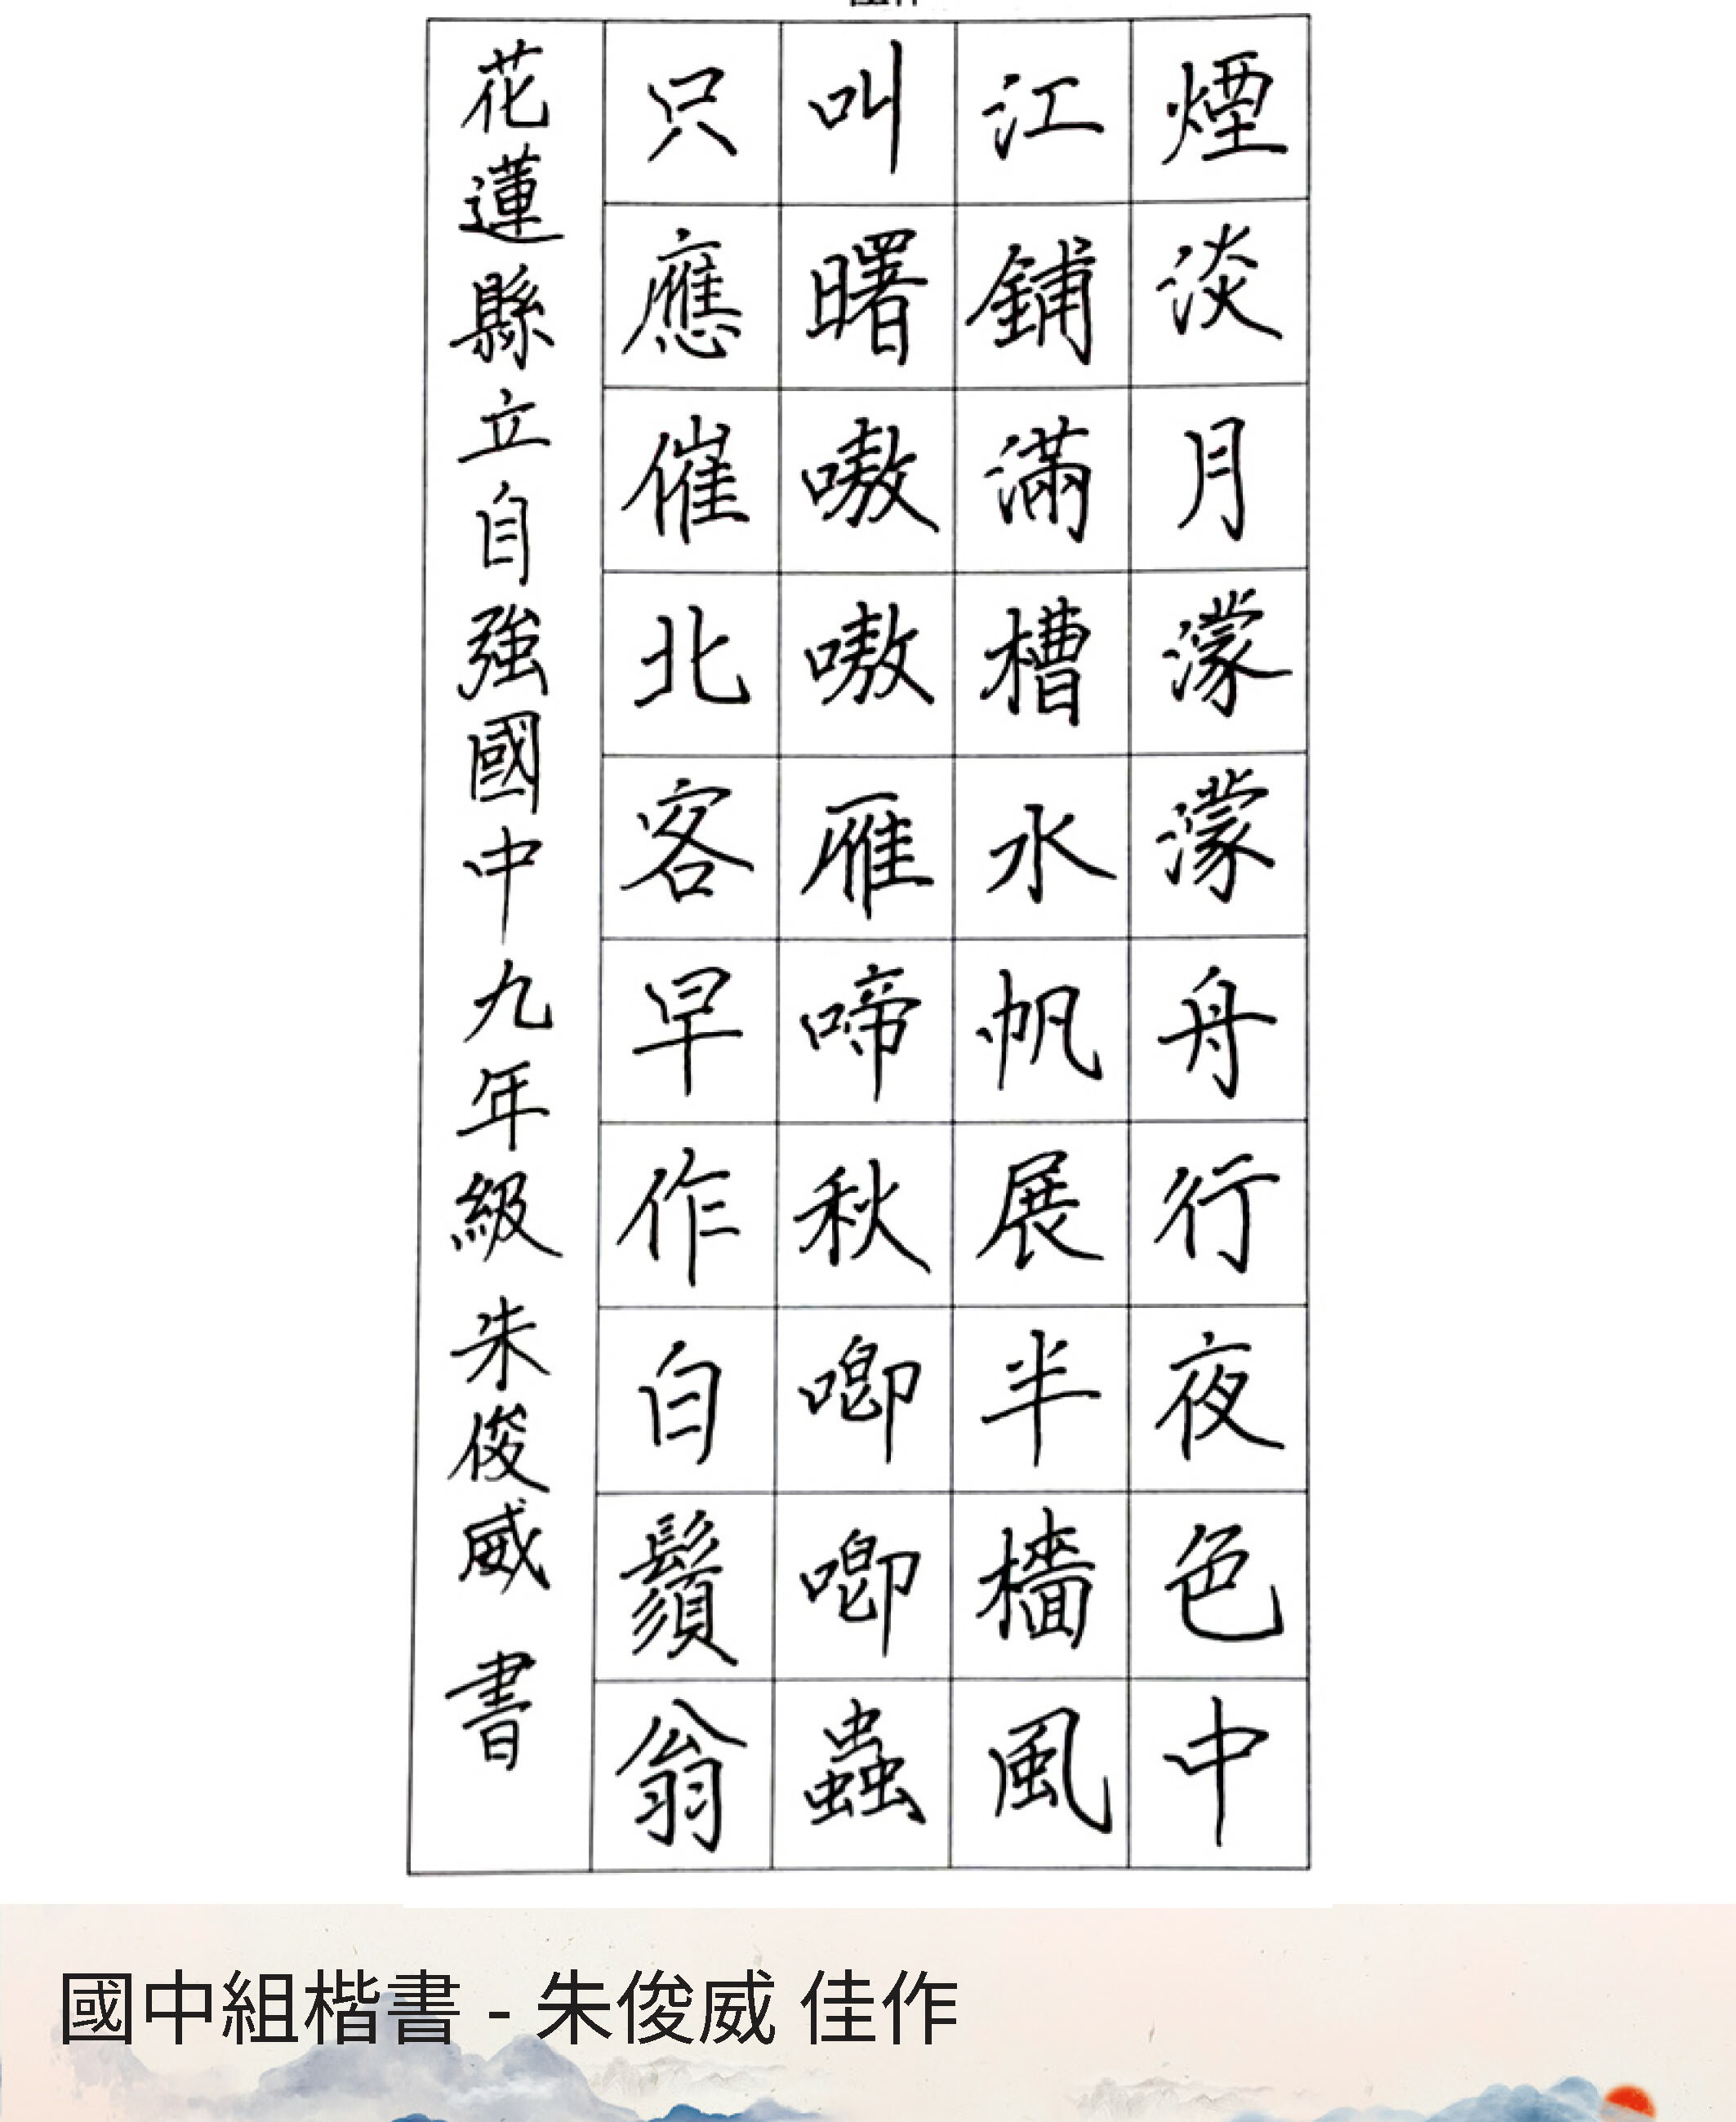 煙淡月濛濛舟行夜色中
江鋪滿槽水帆展半檣風
叫曙嗷嗷雁啼秋喞喞蟲
只應催北客早作白鬚翁
花蓮縣立自強國中九年級朱俊威 書
國中組楷書 - 朱俊威 佳作